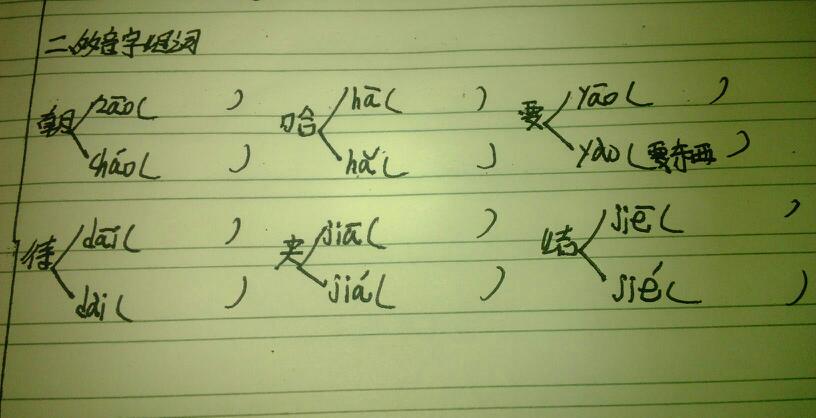 二、多音字组词
朝 zāo( ) 哈 hā( ) 要 yāo( )
cháo( ) hǎ( ) yào(要东西)
待 dāi( ) 夹 jiā( ) 结 jiē( )
dài( ) jiá( ) jié( )